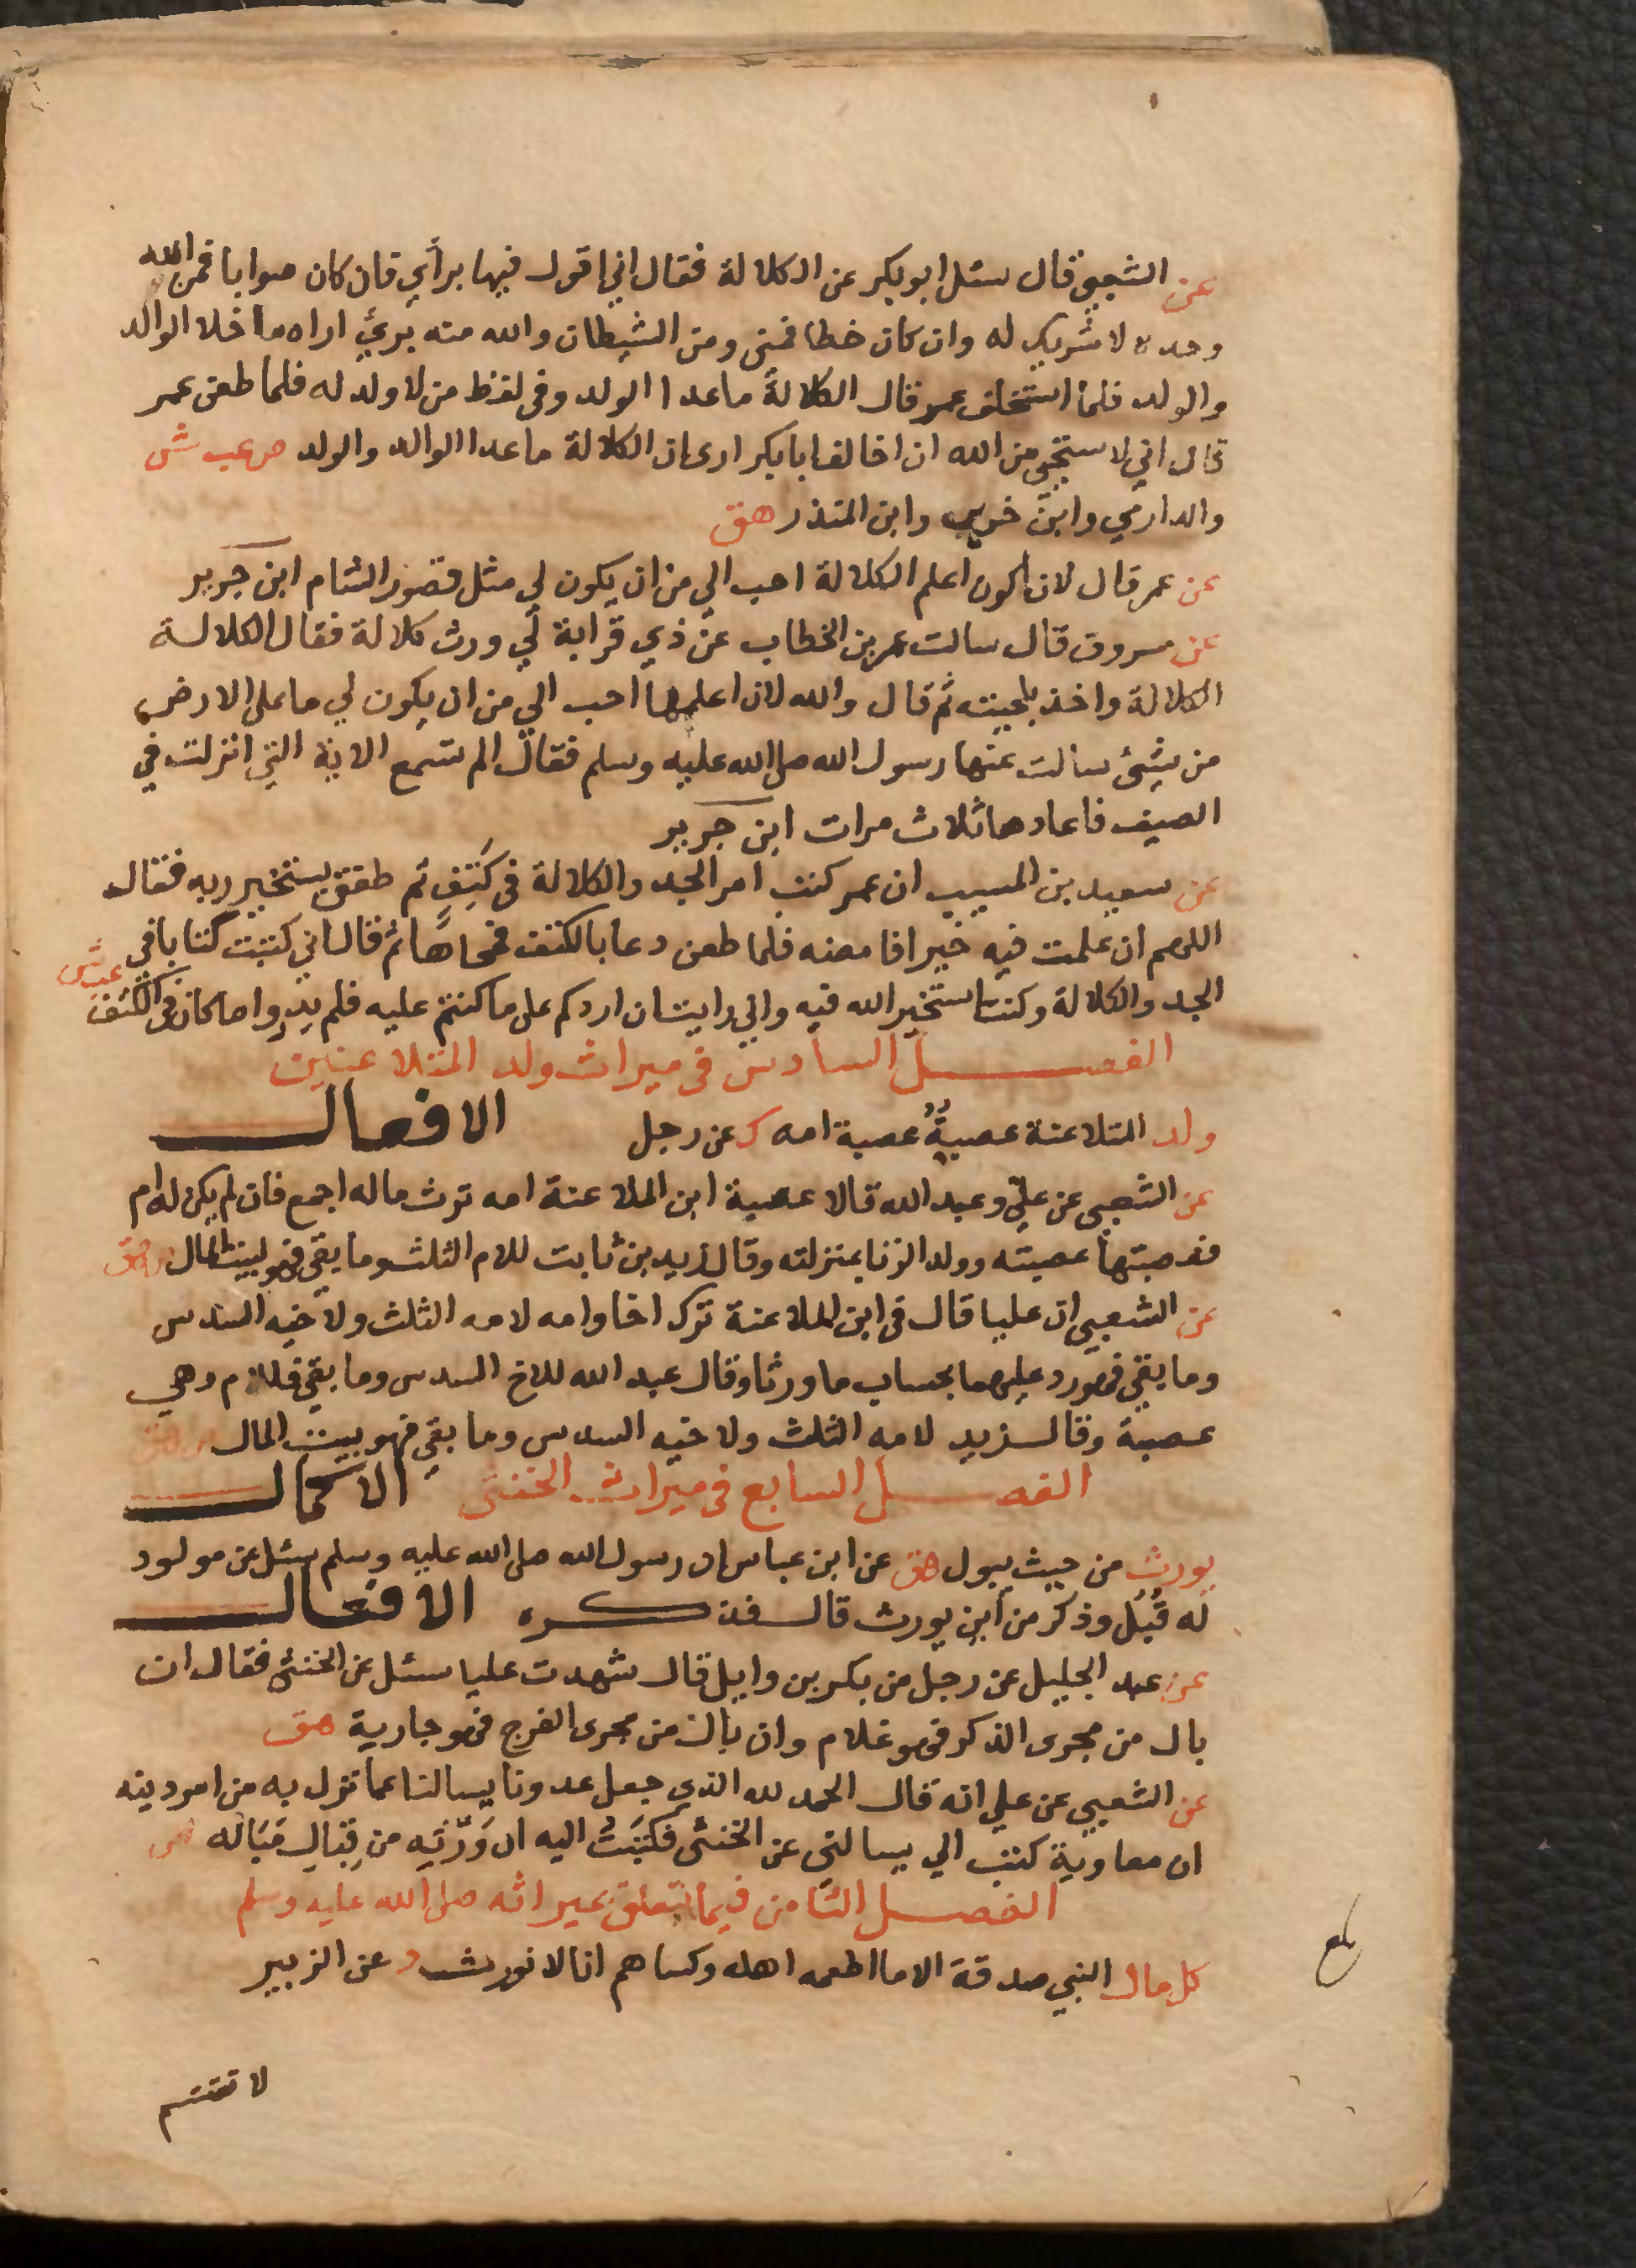 عن الشعبي قال سئل ابو بكر عن الكلالة فقال اني اقول فيها برأي فان كان صوابا فمن الله
وحده لا شريك له وان كان خطا فمني ومن الشيطان والله منه بريئ اراه ما خلا الوالد
والولد فلما استخلف عمر قال الكلالة ما عدا الولد وفي لفظ من لا ولد له فلما طعن عمر
قال اني لا ستحيي من الله ان اخالف ابا بكر ارى ان الكلالة ما عدا الوالد والولد ص عب ش
والدارمي وابن جرير وابن المنذر هق
عن عمر قال لان اكون اعلم الكلالة احب الي من ان يكون لي مثل قصور الشام ابن جرير
عن مسروق قال سالت عمر بن الخطاب عن ذي قرابة لي ورث كلالة فقال الكلالة
الكلالة واخذ بلحيته ثم قال والله لان اعلمها احب الي من ان يكون لي ما على الارض
من شيئ سالت عنها رسول الله صلى الله عليه وسلم فقال الم تسمع الاية التي انزلت في
الصيف فاعادها ثلاث مرات ابن جرير
عن سعيد بن المسيب ان عمر كتب امر الجد والكلالة في كتف ثم طفق يستخير ربه فقال
اللهم ان علمت فيه خيرا فامضه فلما طعن دعا بالكتف فمحاها ثم قال اني كتبت كتابا في
الجد والكلالة وكنت استخير الله فيه واني رايت ان اردكم على ما كنتم عليه فلم يدروا ما كان في الكتف عب ش
الفصل السادس في ميراث ولد المتلاعنين
ولد المتلاعنة عصبته عصبة امه ك عن رجل الافعال
عن الشعبي عن علي وعبد الله قالا عصبة ابن الملاعنة امه ترث ماله اجمع فان لم يكن له ام
فعصبتها عصبته وولد الزنا بمنزلته وقال زيد بن ثابت للام الثلث وما بقي فهو لبيت المال ص هق
عن الشعبي ان عليا قال في ابن الملاعنة ترك اخا وامه لامه الثلث ولاخيه السدس
وما بقي فهو رد عليهما بحساب ما ورثا وقال عبد الله للاخ السدس وما بقي فللام وهي
عصبة وقال زيد لامه الثلث ولاخيه السدس وما بقي فهو بيت المال ص هق
الفصل السابع في ميراث الخنثى الاكمال
يورث من حيث يبول هق عن ابن عباس ان رسول الله صلى الله عليه وسلم سئل عن مولود
له قُبُل وذكر من اين يورث قال فذكره الافعال
عن عبد الجليل عن رجل من بكر بن وايل قال شهدت عليا سئل عن الخنثى فقال ان
بال من مجرى الذكر فهو غلام وان بال من مجرى الفرج فهو جارية هق
عن الشعبي عن علي انه قال الحمد لله الذي جعل عدونا يسالنا عما نزل به من امر دينه
ان معاوية كتب الي يسالني عن الخنثى فكتبتُ اليه ان وَرِّثه من قِبَالِ مَبَاله ص
الفصل الثامن فيما يتعلق بميراثه صلى الله عليه وسلم
كل مال النبي صدقة الا ما اطعمه اهله وكساهم انا لا نورث د عن الزبير
بلغ
لا تقتسم